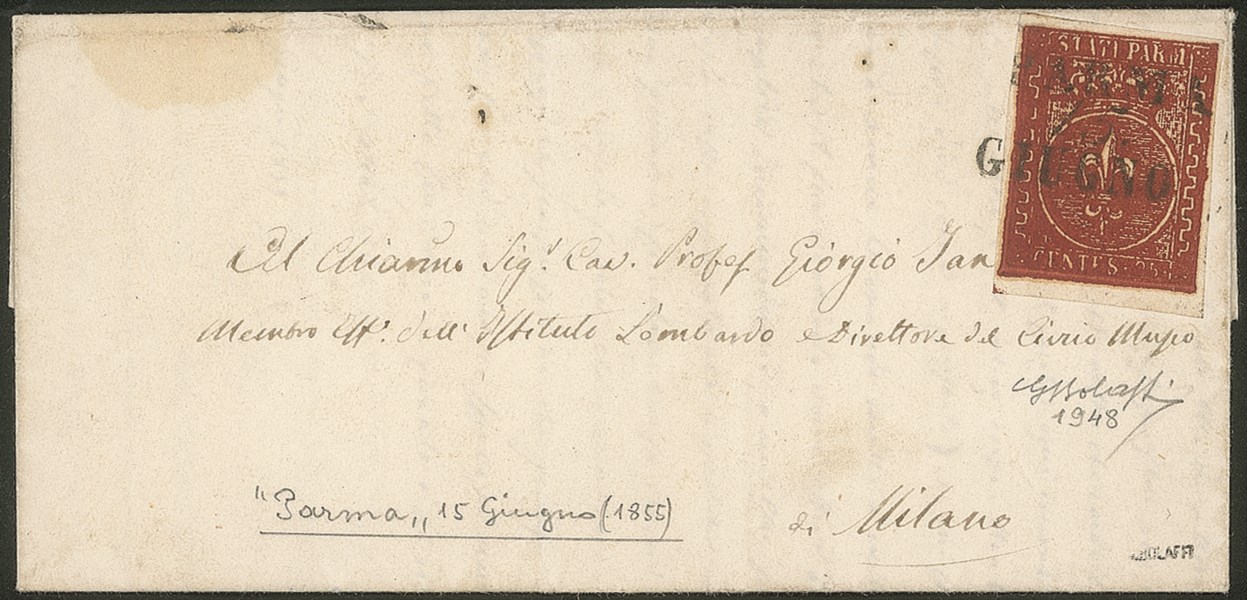 STATI PARM
PARMA
GIUGNO
CENTES 25
Al Chiarmo Sigr. Cav. Profess Giorgio Jan
Membro Effo. dell' Istituto Lombardo e Direttore del Civico Museo
GBolaffi
1948
"Parma„ 15 Giugno (1855)
di Milano
BOLAFFI